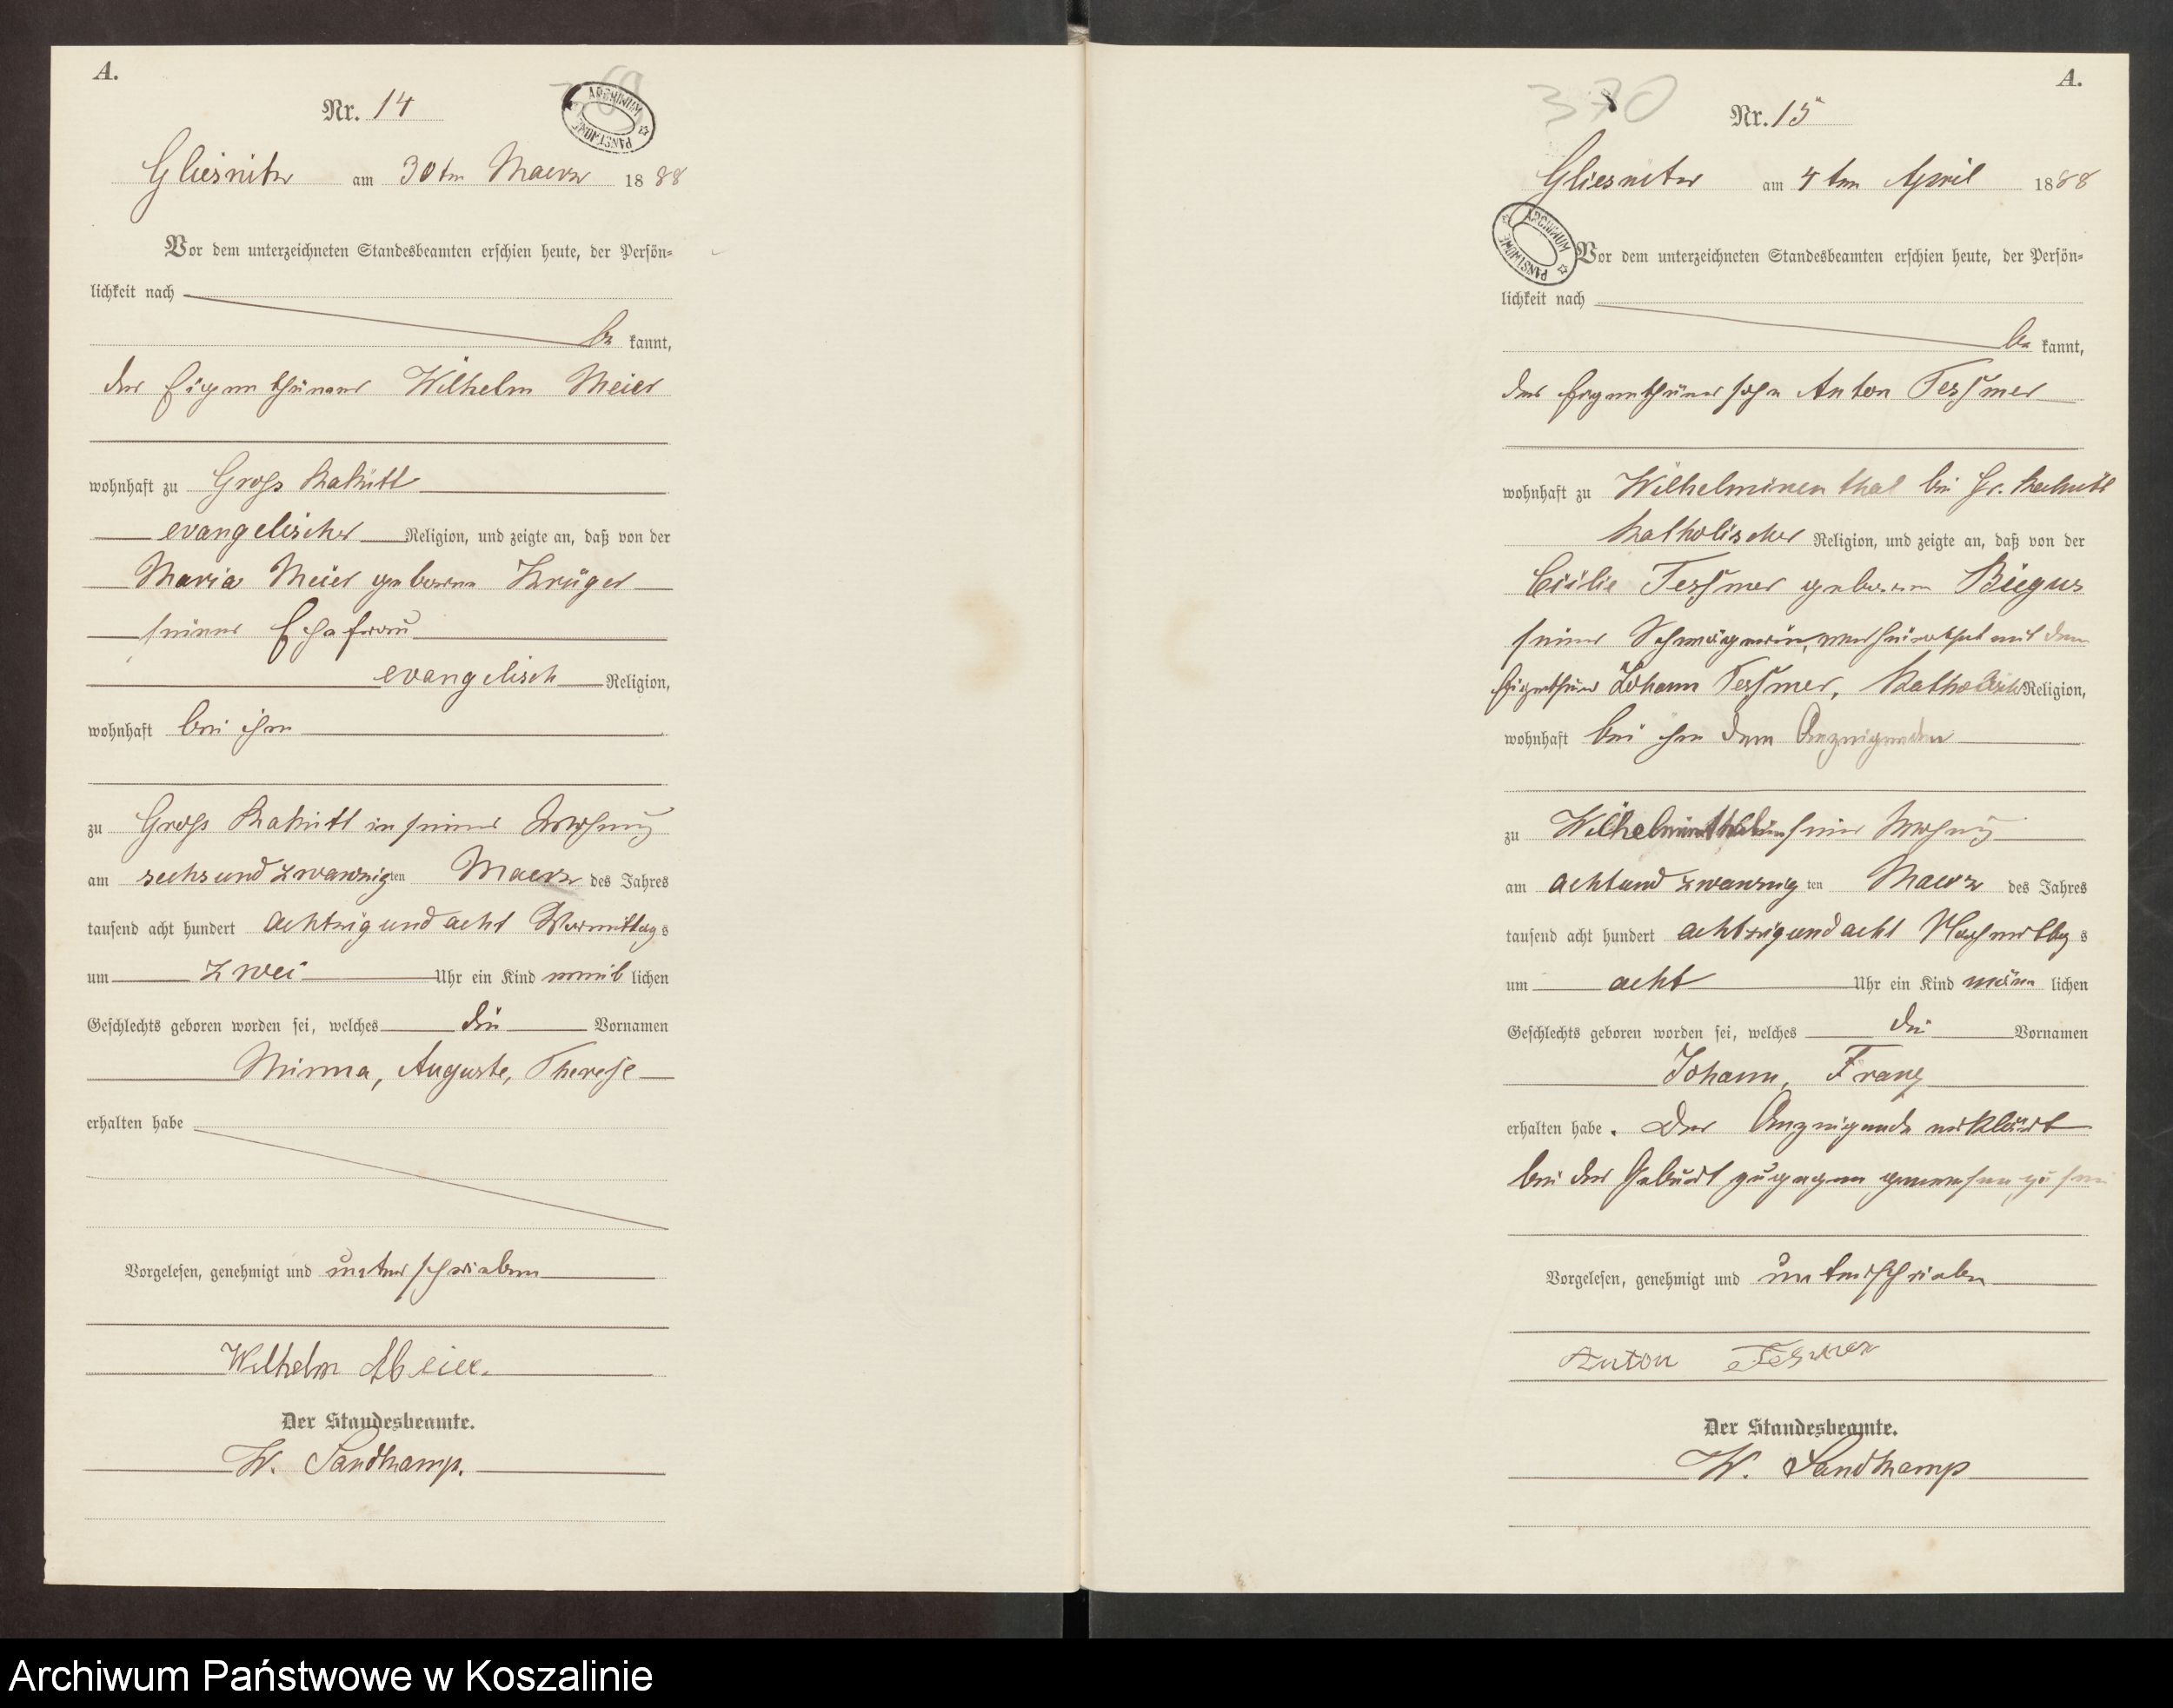 A.
Nr. 14
ARCHIWUM PAŃSTWOWE
Gliesnitz am 30ten Maerz 1888
Vor dem unterzeichneten Standesbeamten erschien heute, der Persön-
lichkeit nach
be kannt,
der Eigenthümer Wilhelm Meier
wohnhaft zu Gross Rakitt
evangelischer Religion, und zeigte an, daß von der
Maria Meier geborene Krüger
seiner Ehefrau
evangelisch Religion,
wohnhaft bei ihm
zu Gross Rakitt in seiner Wohnung
am sechsundzwanzigten Maerz des Jahres
tausend acht hundert achtzig und acht Vormittags
um zwei Uhr ein Kind weib lichen
Geschlechts geboren worden sei, welches die Vornamen
Minna, Auguste, Therese
erhalten habe
Vorgelesen, genehmigt und unterschrieben
Wilhelm Meier.
Der Standesbeamte.
W. Sandkamp.
A.
370
Nr. 15
Gliesnitz am 4ten April 1888
ARCHIWUM PAŃSTWOWE
Vor dem unterzeichneten Standesbeamten erschien heute, der Persön-
lichkeit nach
be kannt,
der Eigenthümersohn Anton Tessmer
wohnhaft zu Wilhelminenthal bei Gr. Rakitt
katholischer Religion, und zeigte an, daß von der
Cecilie Tessmer geborene
seiner Schwägerin, verheirathet mit dem
Eigenthümer Johann Tessmer, katholisch Religion,
wohnhaft bei ihm dem Anzeigenden
zu seiner Wohnung
am achtundzwanzig ten Maerz des Jahres
tausend acht hundert achtzig und acht Nachmittag s
um acht Uhr ein Kind männ lichen
Geschlechts geboren worden sei, welches die Vornamen
Johann, Franz
erhalten habe. Der Anzeigende erklärt
bei der Geburt zugegen gewesen zu sein
Vorgelesen, genehmigt und unterschrieben
Anton Tesmer
Der Standesbeamte.
W. Sandkamp
Archiwum Państwowe w Koszalinie